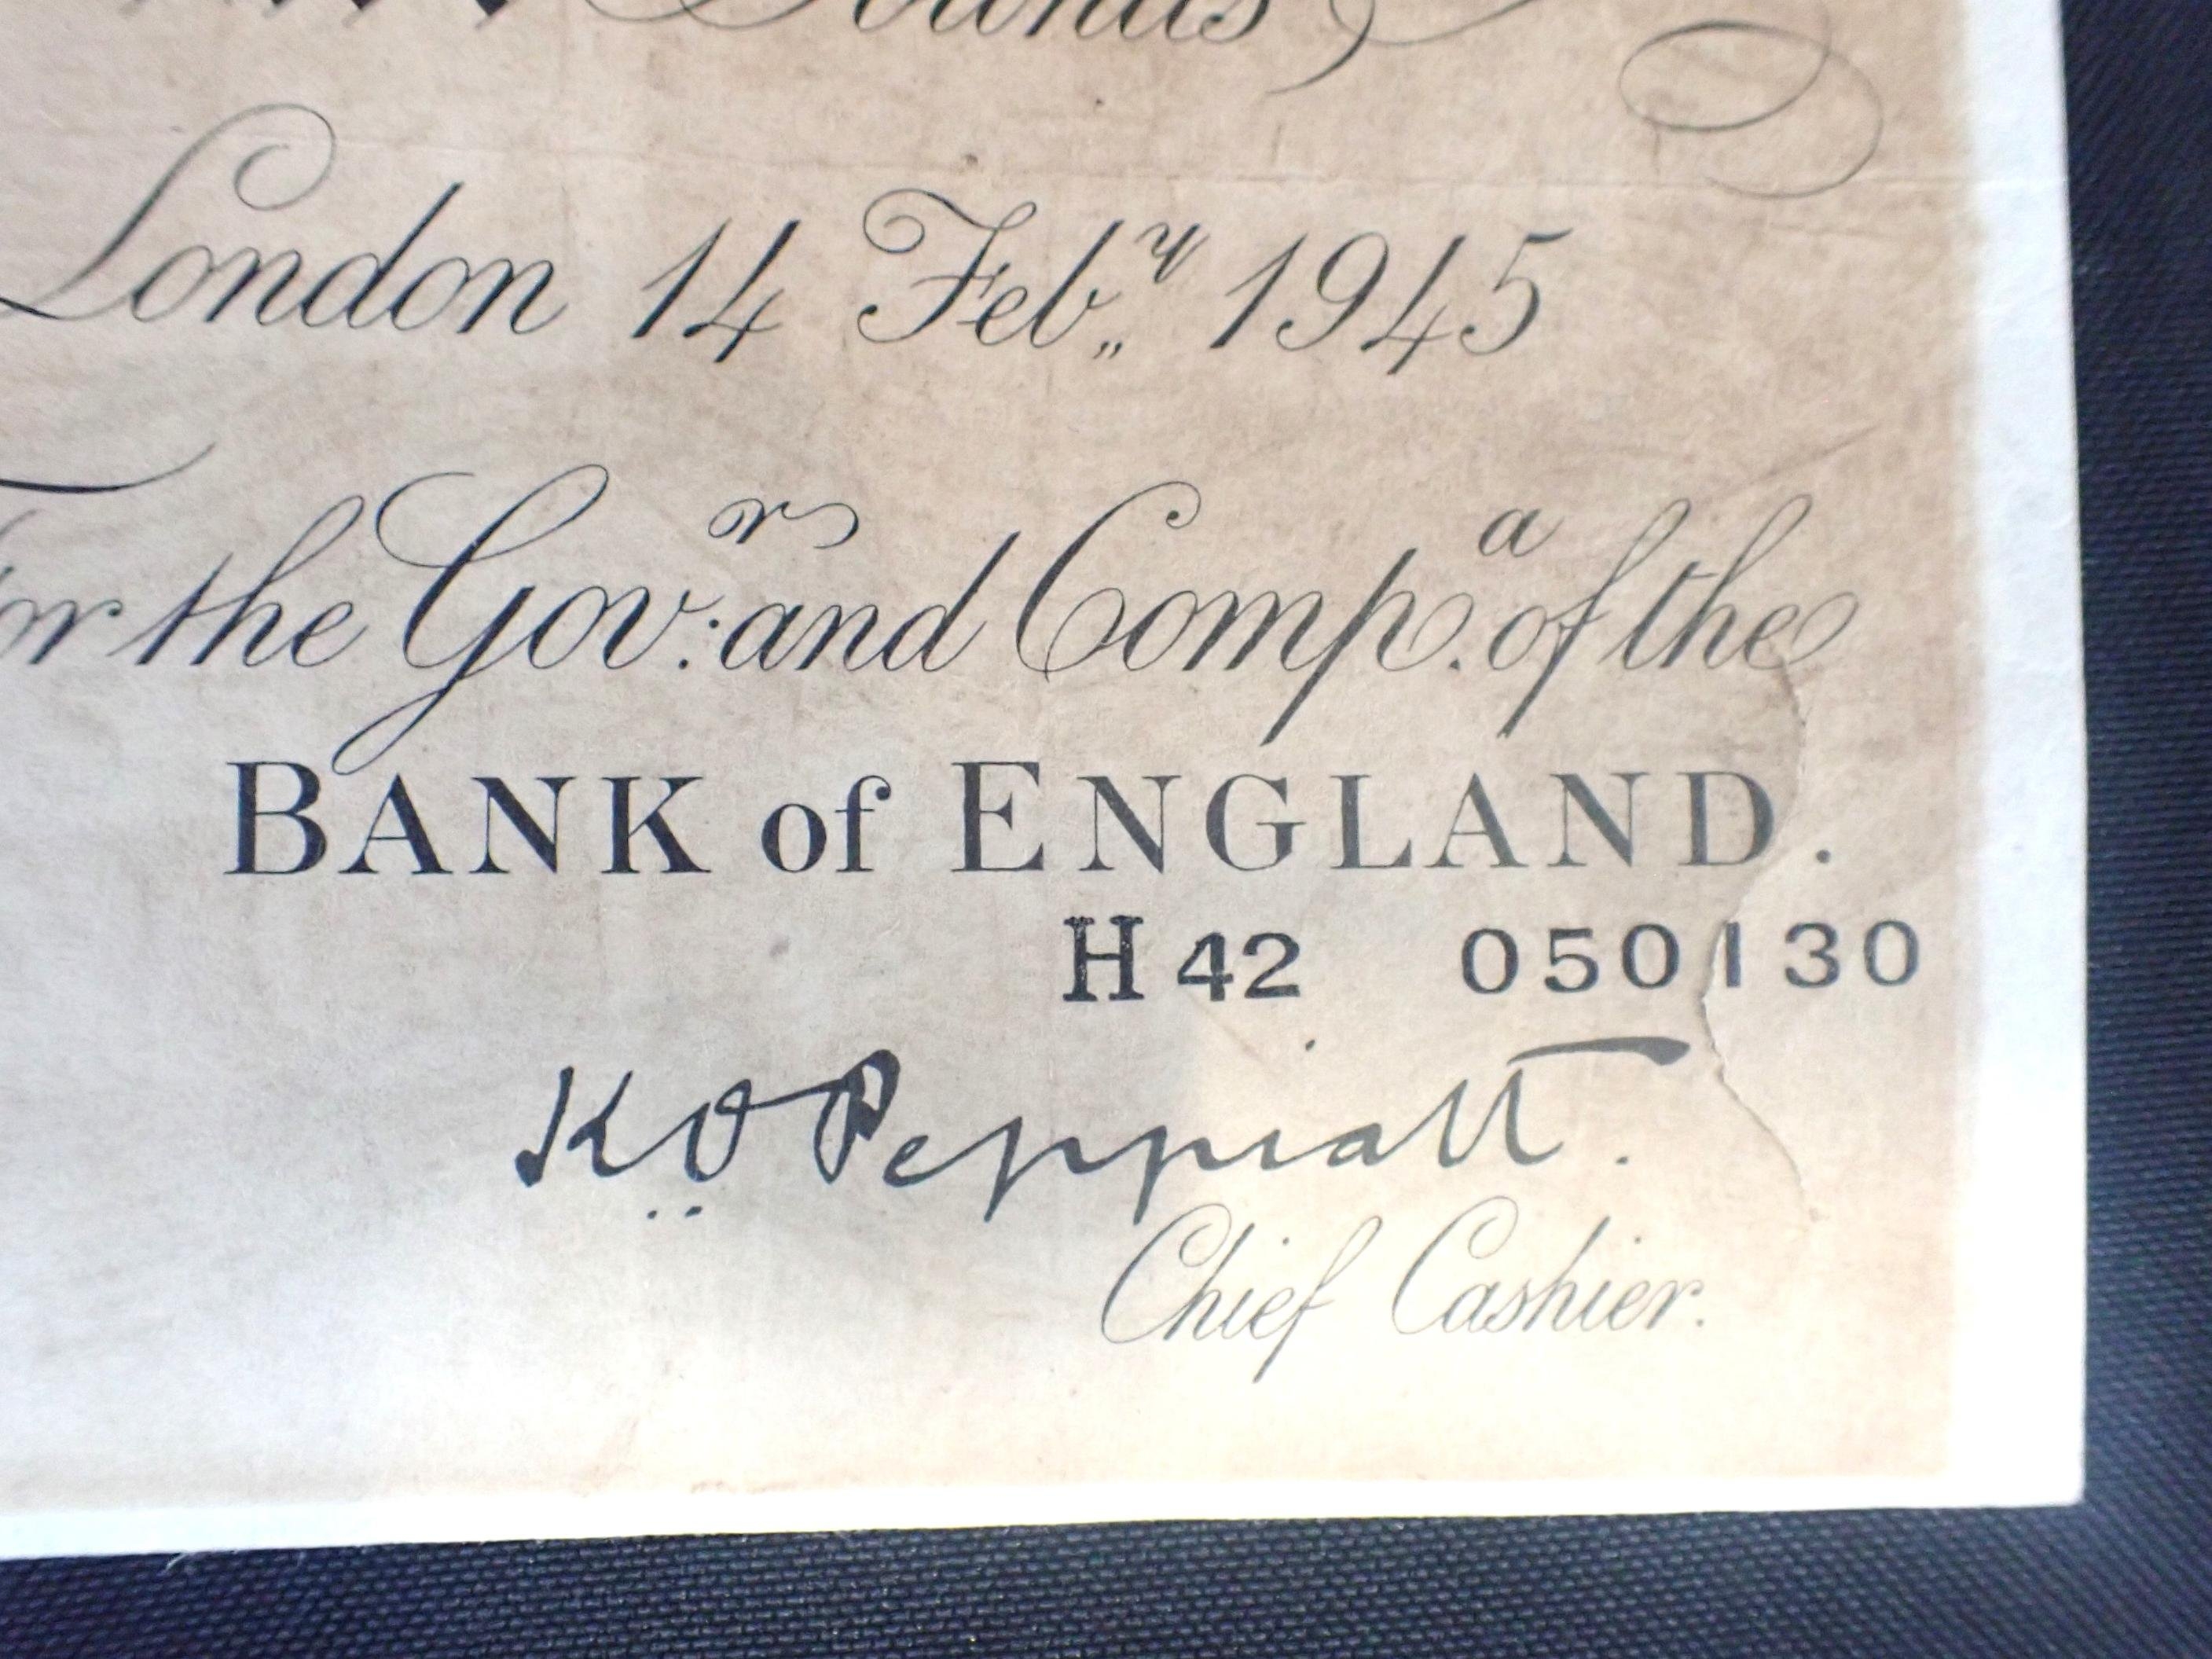 Pounds
London 14 Feb.,y 1945
For the Gov:rs and Comp.a of the
BANK of ENGLAND.
H 42 050130
K.O. Peppiatt.
Chief Cashier.